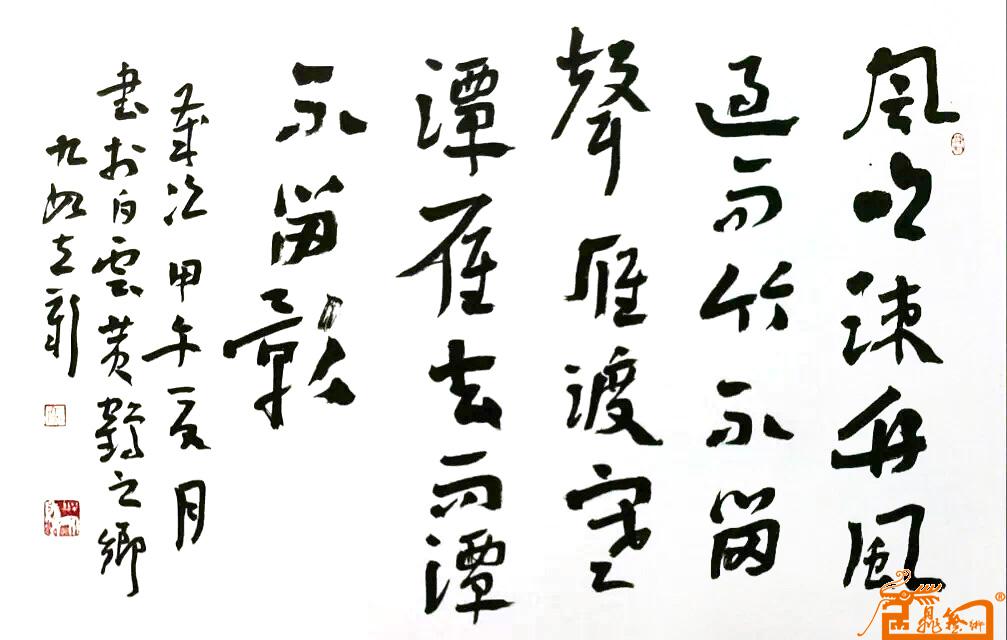 風吹疎竹風
過而竹不留
聲雁渡寒
潭雁去而潭
不留影
歲次甲午夏月
書於白雲黃鶴之鄉
九如立新